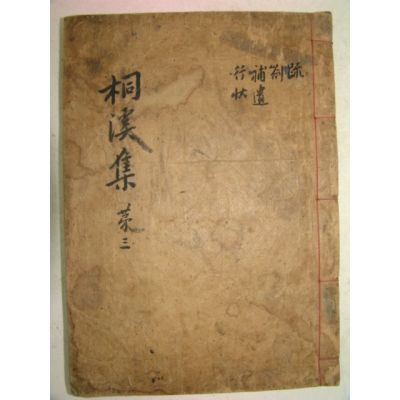 桐溪集 苐三
疏
箚
補遺
行狀